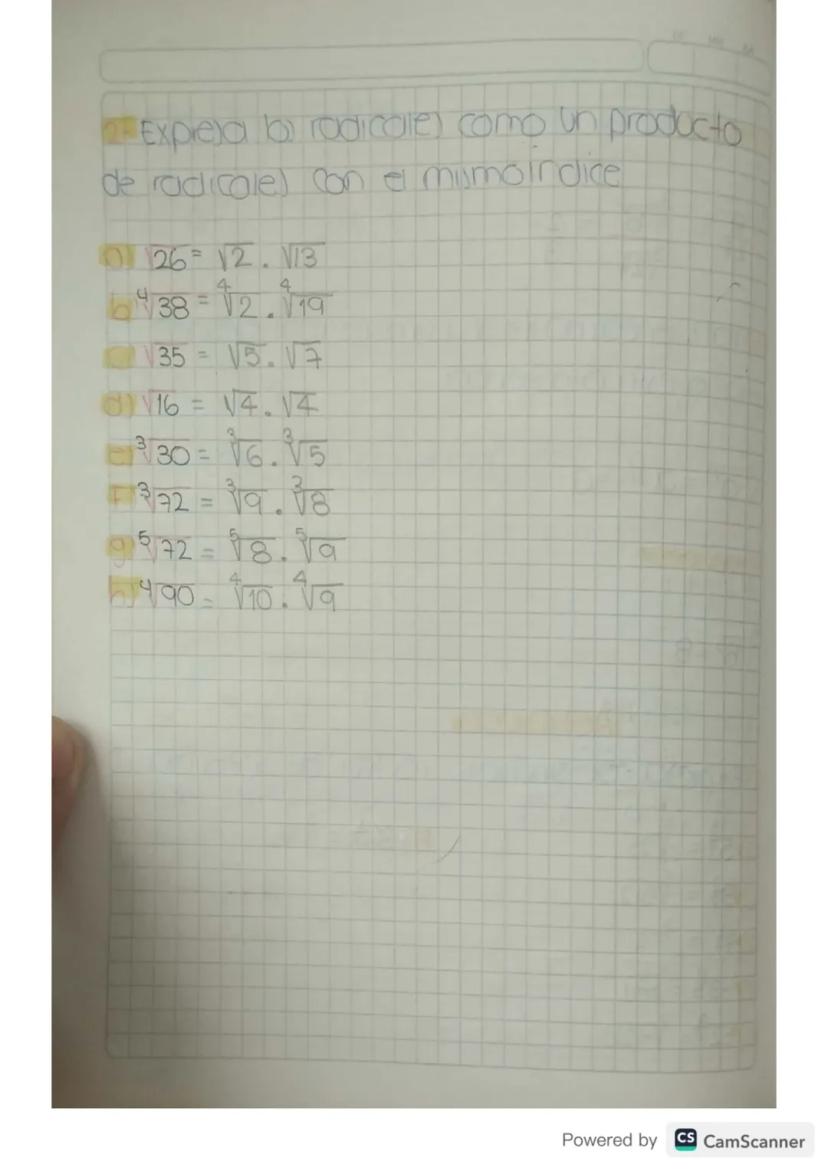 2- Expresa los radicales como un producto
de radicales con el mismo índice
a) √26 = √2 . √13
b) ⁴√38 = ⁴√2 . ⁴√19
c) √35 = √5 . √7
d) √16 = √4 . √4
e) ³√30 = ³√6 . ³√5
f) ³√72 = ³√9 . ³√8
g) ⁵√72 = ⁵√8 . ⁵√9
h) ⁴√90 = ⁴√10 . ⁴√9
Powered by CS CamScanner